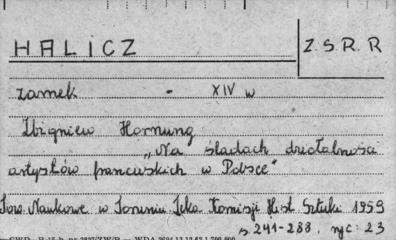 HALICZ
Z.S.R.R
zamek - XIV w
Zbigniew Hornung
„Na śladach działalności
artystów francuskich w Polsce"
Tow. Naukowe w Toruniu Teka Komisji Hist. Sztuki 1959
s. 241-288. ryc. 23